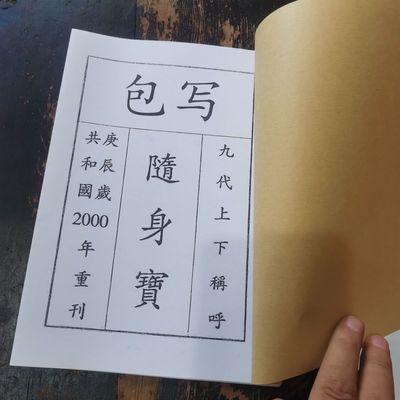 写包
九代上下稱呼
隨身寶
庚辰歲
共和國
2000年重刊